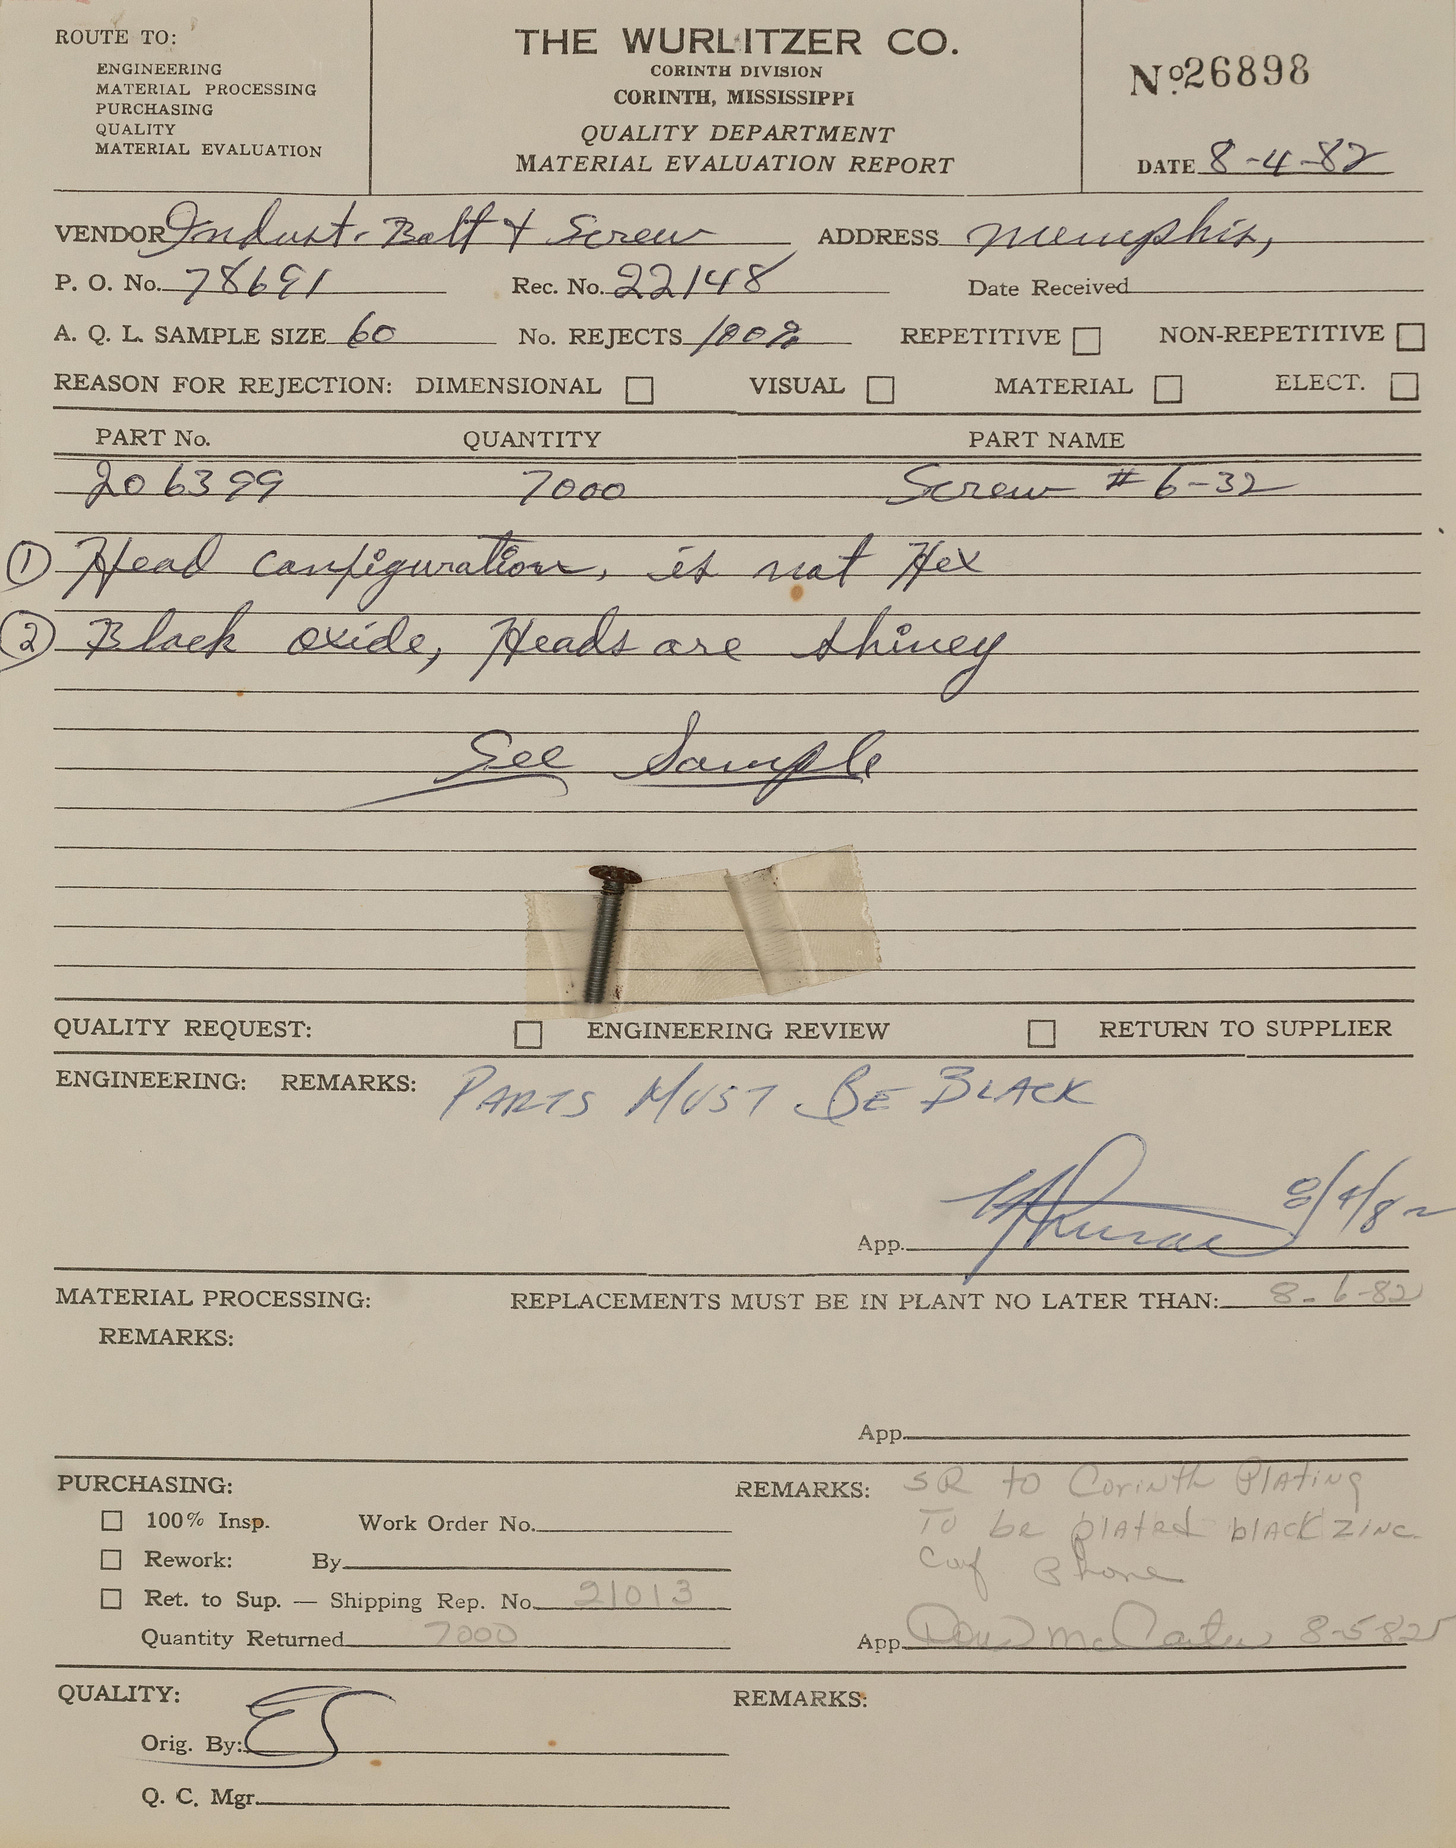 ROUTE TO:
ENGINEERING
MATERIAL PROCESSING
PURCHASING
QUALITY
MATERIAL EVALUATION
THE WURLITZER CO.
CORINTH DIVISION
CORINTH, MISSISSIPPI
QUALITY DEPARTMENT
MATERIAL EVALUATION REPORT
No. 26898
DATE 8-4-82
VENDOR Indust. Bolt & Screw ADDRESS Memphis,
P. O. No. 78691 Rec. No. 22148 Date Received
A. Q. L. SAMPLE SIZE 60 No. REJECTS 100% REPETITIVE NON-REPETITIVE
REASON FOR REJECTION: DIMENSIONAL VISUAL MATERIAL ELECT.
PART No. QUANTITY PART NAME
206399 7000 Screw # 6-32
1 Head configuration, is not Hex
2 Black oxide, Heads are shiney
See Sample
QUALITY REQUEST: ENGINEERING REVIEW RETURN TO SUPPLIER
ENGINEERING: REMARKS: PARTS MUST BE BLACK
App. 8/4/82
MATERIAL PROCESSING: REPLACEMENTS MUST BE IN PLANT NO LATER THAN: 8-6-82
REMARKS:
App.
PURCHASING: REMARKS: SR to Corinth Plating
100% Insp. Work Order No. To be plated black zinc
Rework: By Phone
Ret. to Sup. — Shipping Rep. No. 21013
Quantity Returned 7000 App. Don McCarter 8-5-82
QUALITY: REMARKS:
Orig. By: ES
Q. C. Mgr.